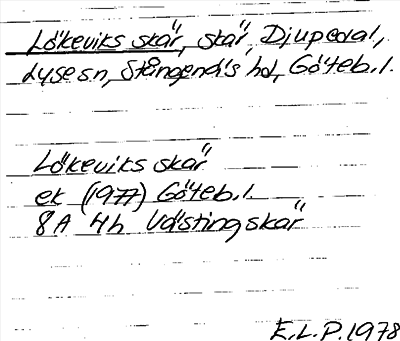 Lökeviks skär, skär, Djupedal,
Lyse sn, Stångenäs hd, Göteb. l.
Lökeviks skär
ek (1977) Göteb. l.
8A 4h Västingskär
E.L.P. 1978